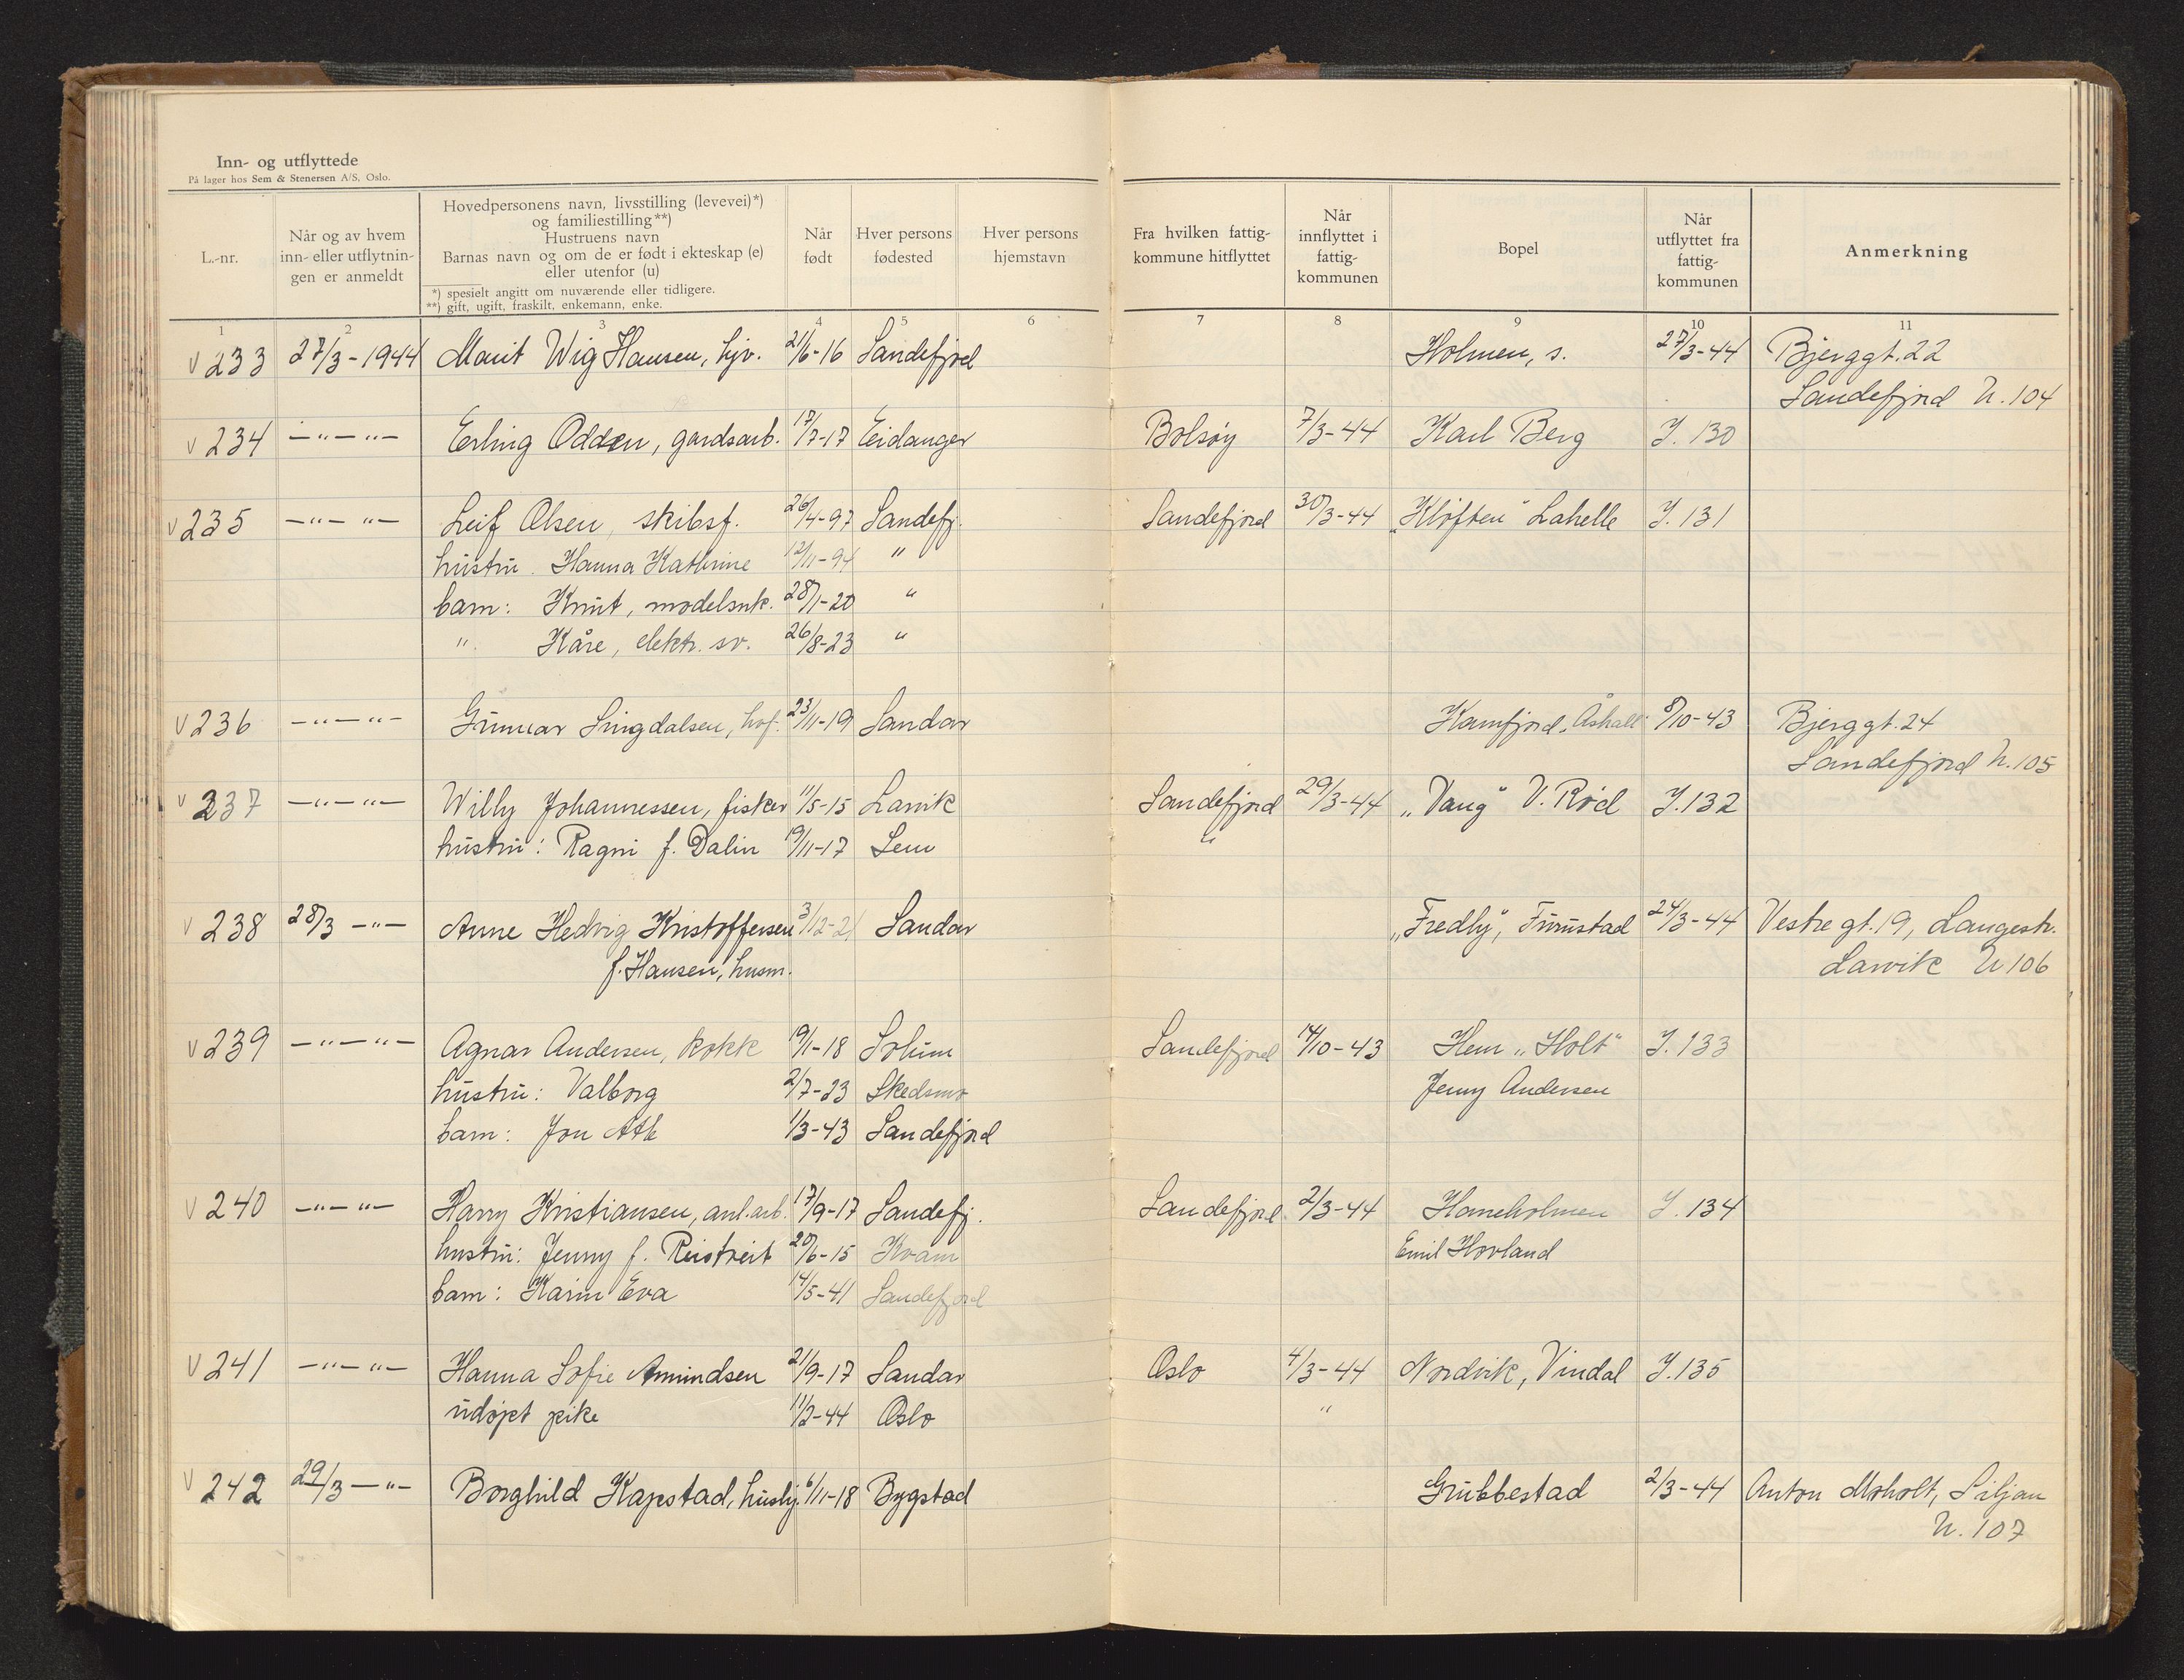 Inn- og utflyttede
På lager hos Sem & Stenersen A/S, Oslo.
L.-nr.
Når og av hvem
inn- eller utflytnin-
gen er anmeldt
Hovedpersonens navn, livsstilling (levevei)*)
og familiestilling**)
Hustruens navn
Barnas navn og om de er født i ekteskap (e)
eller utenfor (u)
*) spesielt angitt om nuværende eller tidligere.
**) gift, ugift, fraskilt, enkemann, enke.
Når
født
Hver persons
fødested
Hver persons
hjemstavn
Fra hvilken fattig-
kommune hitflyttet
Når
innflyttet i
fattig-
kommunen
Bopel
Når
utflyttet fra
fattig-
kommunen
Anmerkning
1 2 3 4 5 6 7 8 9 10 11
v 233 27/3-1944 Marit Wig Hansen, hjv. 21/6-16 Sandefjord Holmen, s. 27/3-44 Bjerggt. 22
Sandefjord U. 104
v 234 —"—"— Erling Odden, gardsarb. 17/7-17 Eidanger Bolsøy 7/3-44 Karl Berg J. 130
v 235 —"—"— Leif Olsen, skibsf. 26/4-97 Sandefj. Sandefjord 30/3-44 „Kløften" Lahelle J. 131
hustru. Hanna Kathrine 12/11-94 "
barn: Knut, modelsnk. 28/1-20 "
" Kåre, elektr. sv. 26/8-23 "
v 236 —"—"— Gunnar Lingdalsen, hvf. 23/11-19 Sandar Kamfjord, Åshall 8/10-43 Bjerggt. 24
Sandefjord U. 105
v 237 —"—"— Willy Johannessen, fisker 11/5-15 Larvik Sandefjord 29/3-44 „Vang" V. Rød J. 132
hustru: Ragni f. Dalin 19/11-17 Sem "
v 238 28/3 —"— Anne Hedvig Kristoffersen 3/12-21 Sandar „Fredly", Furustad 24/3-44 Vestre gt. 19, Langestr.
f. Hansen, husm. Larvik U 106
v 239 —"—"— Agnar Andersen, kokk 19/1-18 Solum Sandefjord 14/10-43 Hem „Holt" J. 133
hustru: Valborg 2/7-23 Skedsmo Jenny Andersen
barn: Jon Atle 1/3-43 Sandefjord
v 240 —"—"— Harry Kristiansen, anl.arb. 17/9-17 Sandefj. Sandefjord 2/3-44 Haneholmen J. 134
hustru: Jenny f. Reistveit 20/6-15 Kvam Emil Hovland
barn: Karin Eva 14/5-41 Sandefjord
v 241 —"—"— Hanna Sofie Amundsen 21/9-17 Sandar Oslo 4/3-44 Nordvik, Vindal J. 135
udøpt pike 11/2-44 Oslo "
v 242 29/3 —"— Borghild Kapstad, hushj. 6/11-18 Bygstad Grubbestad 2/3-44 Anton Moholt, Siljan
U. 107